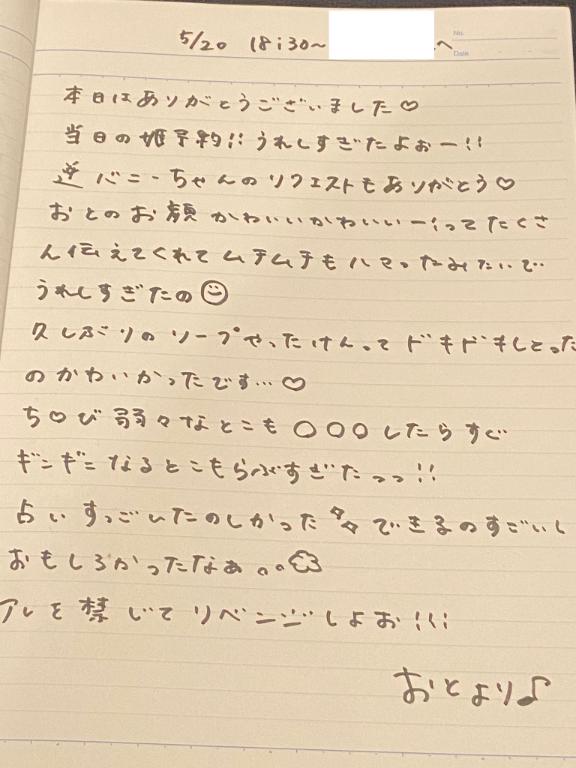 5/20 18:30~ へ
No.
Date
本日はありがとうございました♡
当日の姫予約!! うれしすぎたよぉー!!
逆バニーちゃんのリクエストもありがとう♡
おとのお顔かわいいかわいいー!ってたくさ
ん伝えてくれてムチムチもハマったみたいで
うれしすぎたの☺
久しぶりのソープやったけんってドキドキしとった
のかわいかったです…♡
ち♡び弱々なとこも〇〇〇したらすぐ
ギンギンなるとこもらぶすぎたっっ!!
占いすっごいたのしかった できるのすごいし
おもしろかったなぁ。。
アレを禁じてリベンジしよお!!!
おとより♪